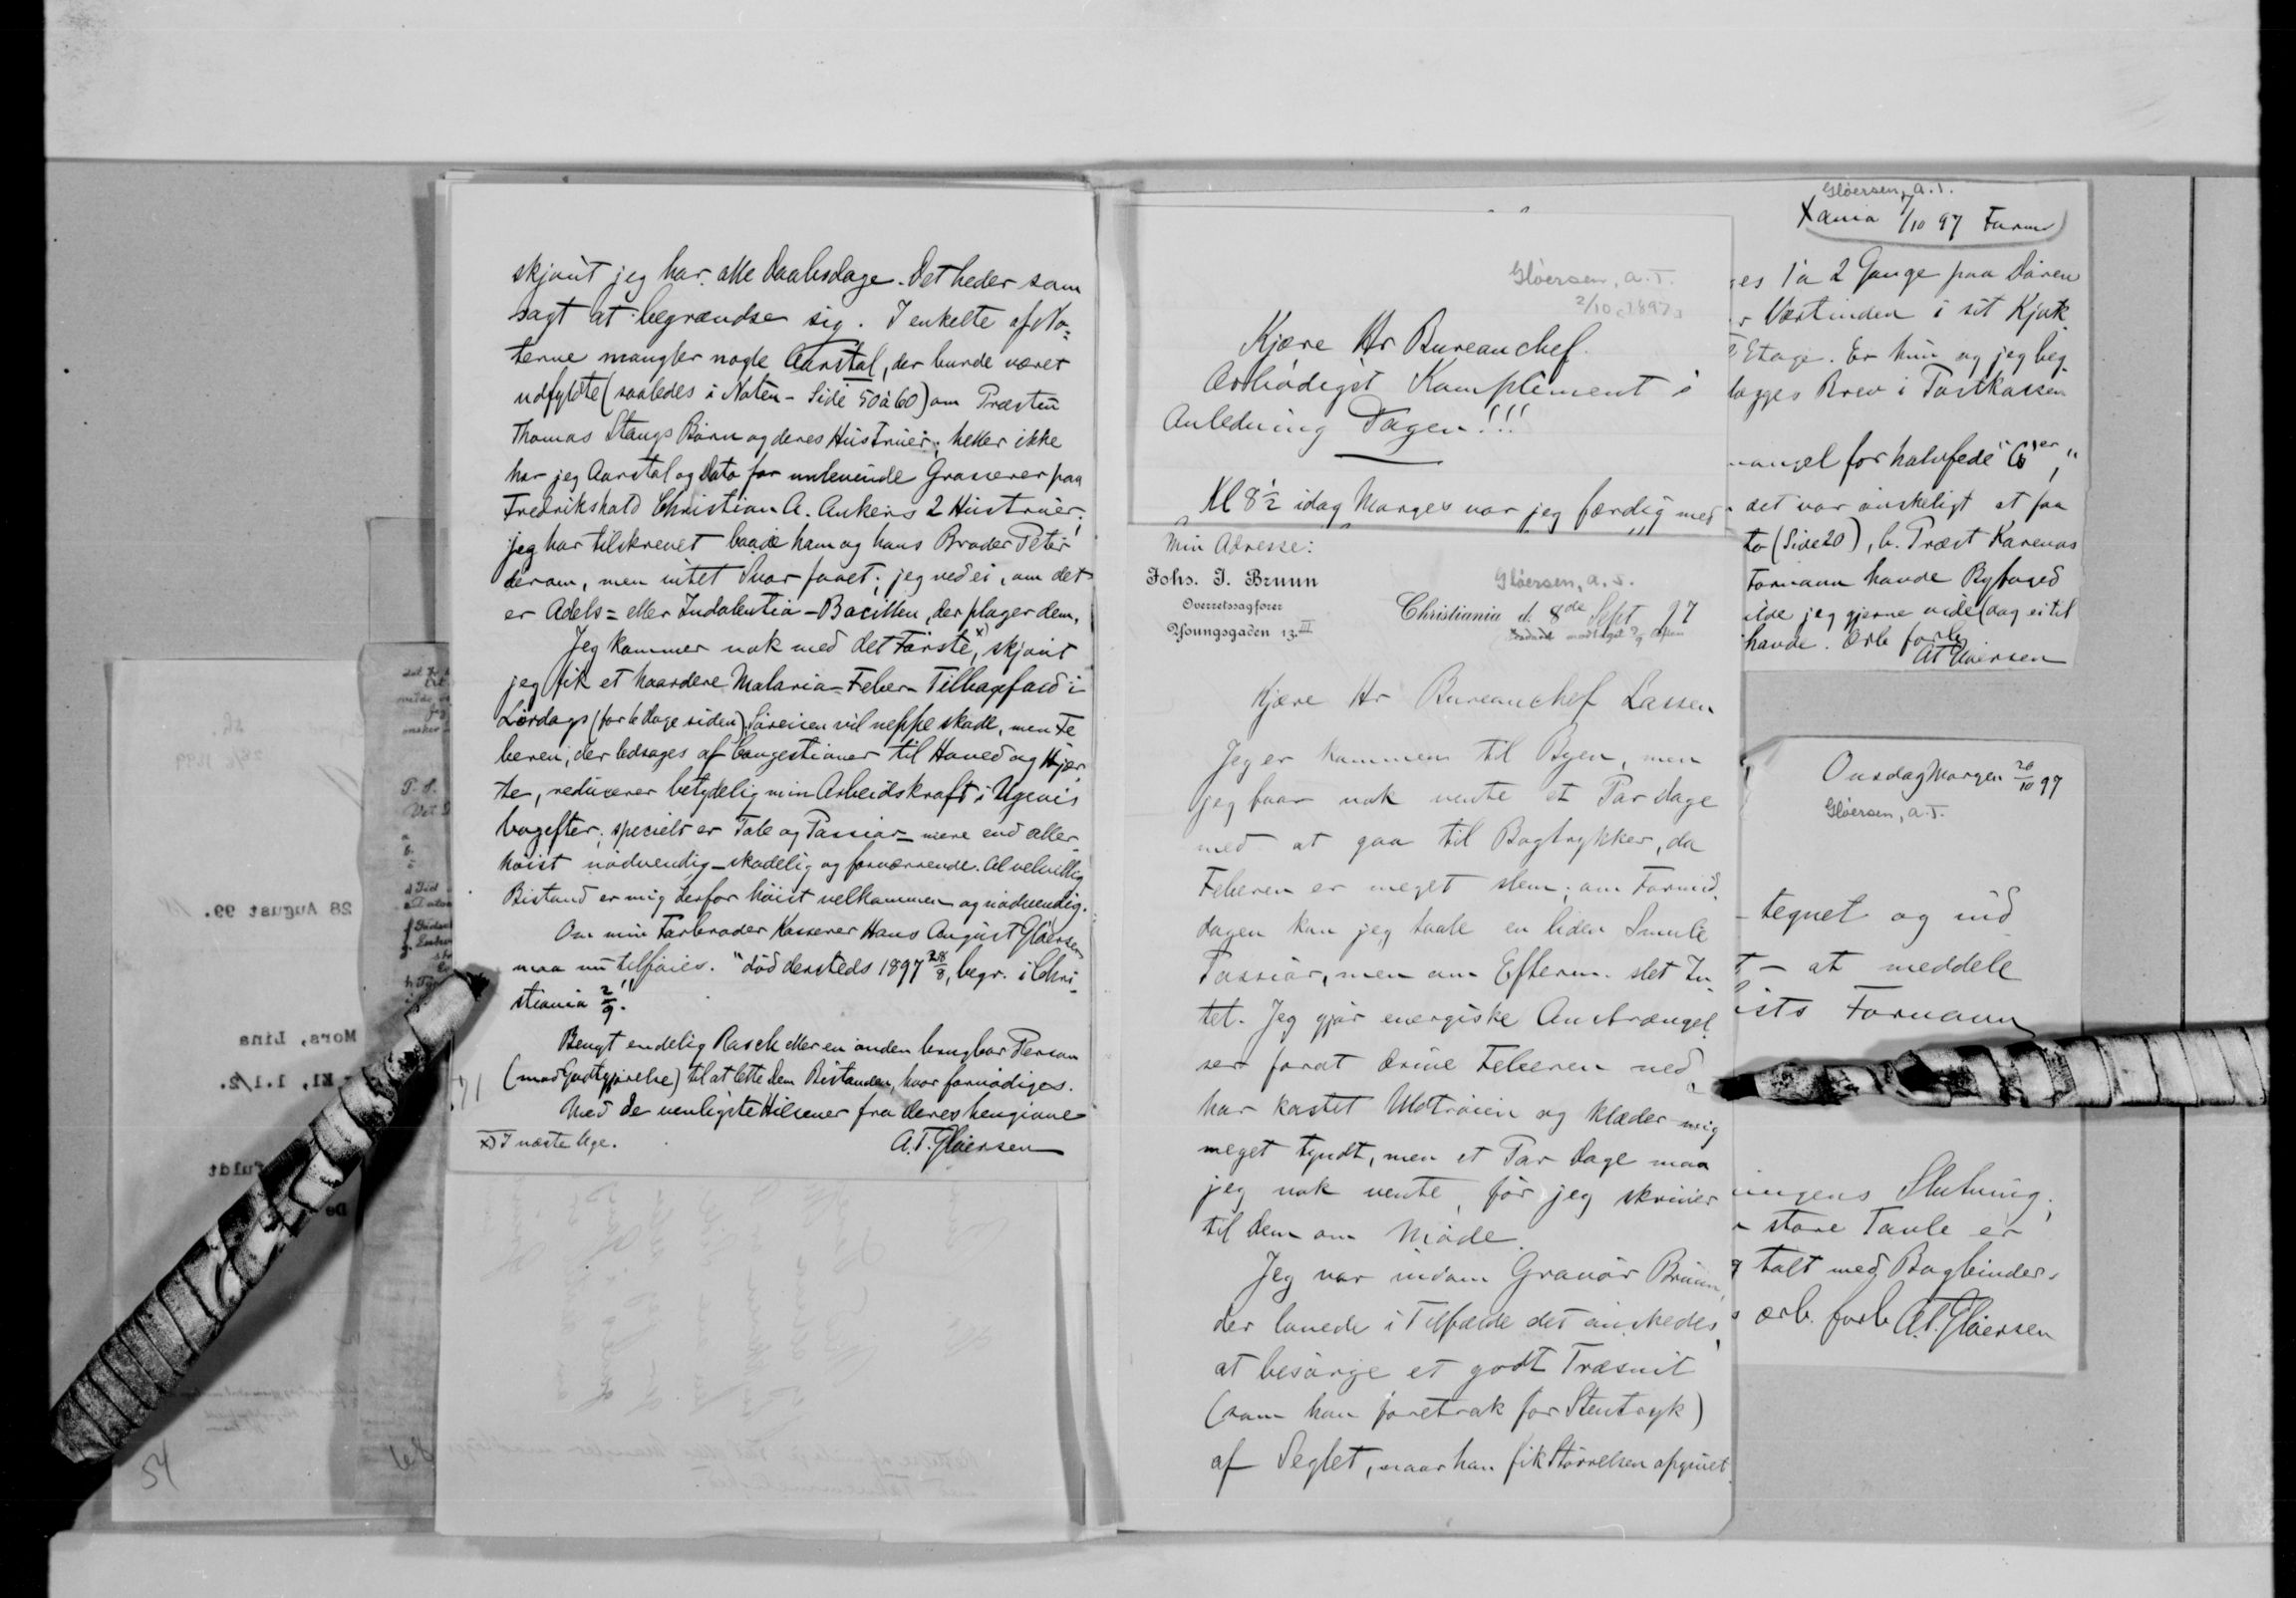 skjønt jeg har alle Daabsdage. Det heder som
sagt at begrændse sig. I enkelte af No-
terne mangler nogle Aarstal, der burde været
udfyldte (saaledes i Noten - Side 50 à 60) om Præsten
Thomas Stangs Børn og deres Hustruer; heller ikke
har jeg Aarstal og Dato for nulevende Grosserer paa
Fredrikshald Christian A. Ankers 2 Hustruer;
jeg har tilskrevet baade ham og hans Broder Peter
derom, men intet Svar faaet; jeg ved ei, om det
er Adels= eller Indolentia-Bacillen, der plager dem.
Jeg kommer nok med det Første x), skjønt
jeg fik et haardere Malaria-Feber-Tilbagefald i
Lørdags (for 6 Dage siden). Søreisen vil neppe skade, men Fe
beren, der ledsages af Congestioner til Hoved og Hjer
te, reducerer betydelig min Arbeidskraft i Ugevis
bagefter, specielt er Tale og Passiar - mere end aller
høist nødvendig - skadelig og forværrende. Al velvillig
Bistand er mig derfor høist velkommen og nødvendig.
Om min Farbroder Kasserer Hans August Gløersen
maa nu tilføies. "død dersteds 1897 28/8, begr. i Chri-
stiania 2/9."
Benyt endelig Rasch eller en anden brugbar Person
(mod Godtgjørelse) til at lette Dem Bistanden, hvor fornødiges.
Med de venligste Hilsener fra Deres hengivne
x) I næste Uge.
A. T. Gløersen
Gløersen, A. T.
2/10 1897
Kjære Hr Bureauchef.
Ærbødigst Kompliment i
Anledning Dagen!!!
Kl 8½ idag Morges var jeg færdig med
Min Adresse:
Johs. J. Bruun
Overretssagfører
Youngsgaden 13. III
Gløersen, A. T.
Christiania d. 8de Sept 97
Kjære Hr Bureauchef Lassen
Jeg er kommen til Byen, men
jeg faar nok vente et Par Dage
med at gaa til Bogtrykker, da
Feberen er meget slem; om Formid
dagen kan jeg taale en liden Smule
Passiar, men om Efterm. slet In
tet. Jeg gjør energiske Anstrængel
ser forat drive Feberen ned,
har kastet Uldtrøien og klæder mig
meget tyndt, men et Par Dage maa
jeg nok vente, før jeg skriver
til Dem om Møde.
Jeg var indom Gravør Bruun,
der lovede i Tilfælde det ønskedes,
at besørge et godt Træsnit
(som han foretrak for Stentryk)
af Seglet, naar han fik Størrelsen opgivet
Gløersen, A. T.
Xania 1/10 97 Form
es 1 à 2 Gange paa Døren
Værtinden i sit Kjøk
Etage. Er hun og jeg beg
lægges Brev i Postkassen
mangel for halvfede "G"er,
det var ønskeligt at faa
to (Side 20), b. Præst Karenas
Fornavn havde Byfoged
ilde jeg gjerne vide (dog ei til
havde. Ærb forb
A T Gløersen
Onsdag Morgen 20/10 97
Gløersen, A. T.
tegnet og ind
- at meddele
ists Fornavn
ingens Slutning;
store Tavle er
talt med Bogbinder
ærb. forb. A. T. Gløersen
28 August 99.
Mors, Lina
Kl. 1.1/2.
fuldt
De
P. S.
54
68